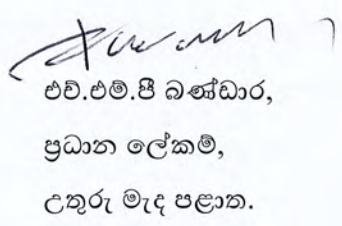 එච්.එම්.පී බණ්ඩාර,
ප්‍රධාන ලේකම්,
උතුරු මැද පළාත.